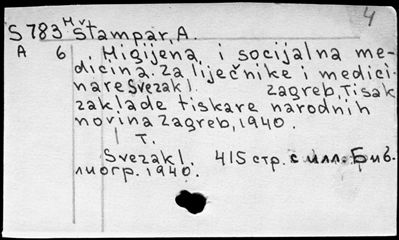 4
S 783 м Štampar, A.
A 6 Higijena i socijalna me-
dicina. Za liječnike i medici-
nare Svezak I. Zagreb, Tisak
zaklade tiskare narodnih
novina Zagreb, 1940.
1 T.
Svezak I. 415 стр. с илл. Биб.
лиогр. 1940.